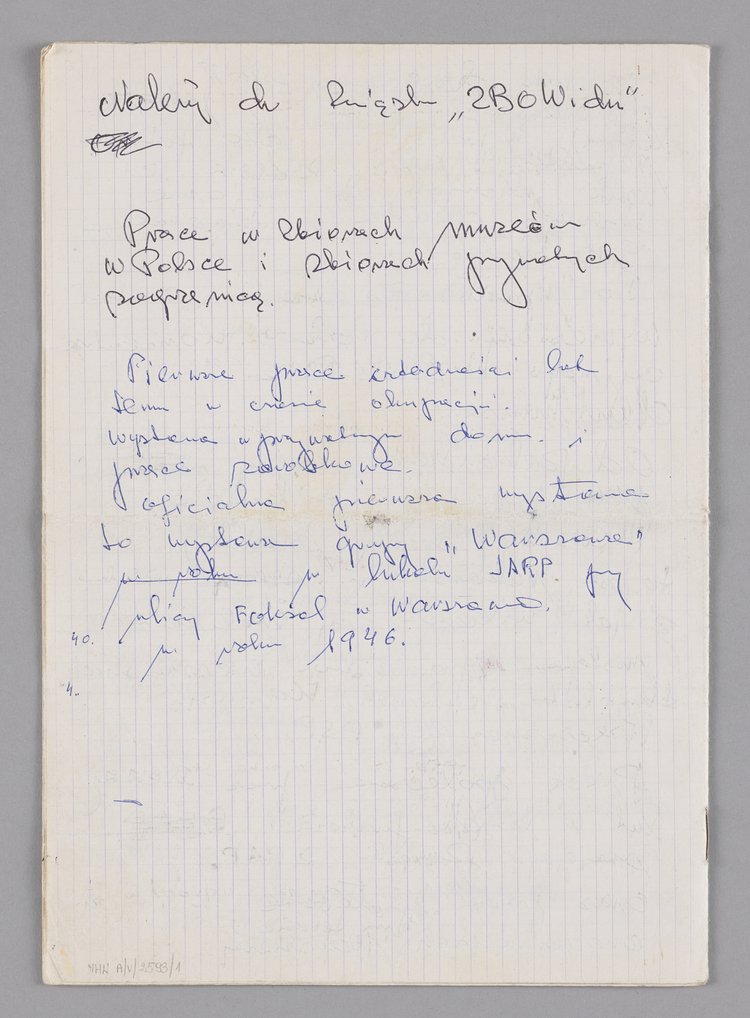 Należę do Związku „ZBOWidu"
Prace w zbiorach muzeów
w Polsce i zbiorach prywatnych
zagranicą.
Pierwsze prace czterdzieści lat
temu w czasie okupacji.
wystawa w prywatnym domu. i
prace
oficjalna pierwsza wystawa
to wystawa Grupy „Warszawa"
w roku w lokalu SARP. przy
ulicy Foksal w Warszawie.
40.
w roku 1946.
4.
MHW A/V/2593/1